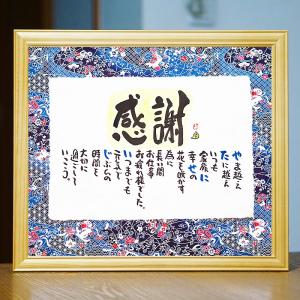 感謝
やま越え
たに越え
いつも
家族に
幸せの
花を咲かす
為に
長い間
お仕事
お疲れ様でした。
いつまでも
元気で
じぶんの
時間を
大切に
過ごして
いこう。